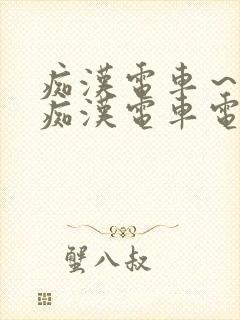 痴漢電車～
痴漢電車電
蟹八叔